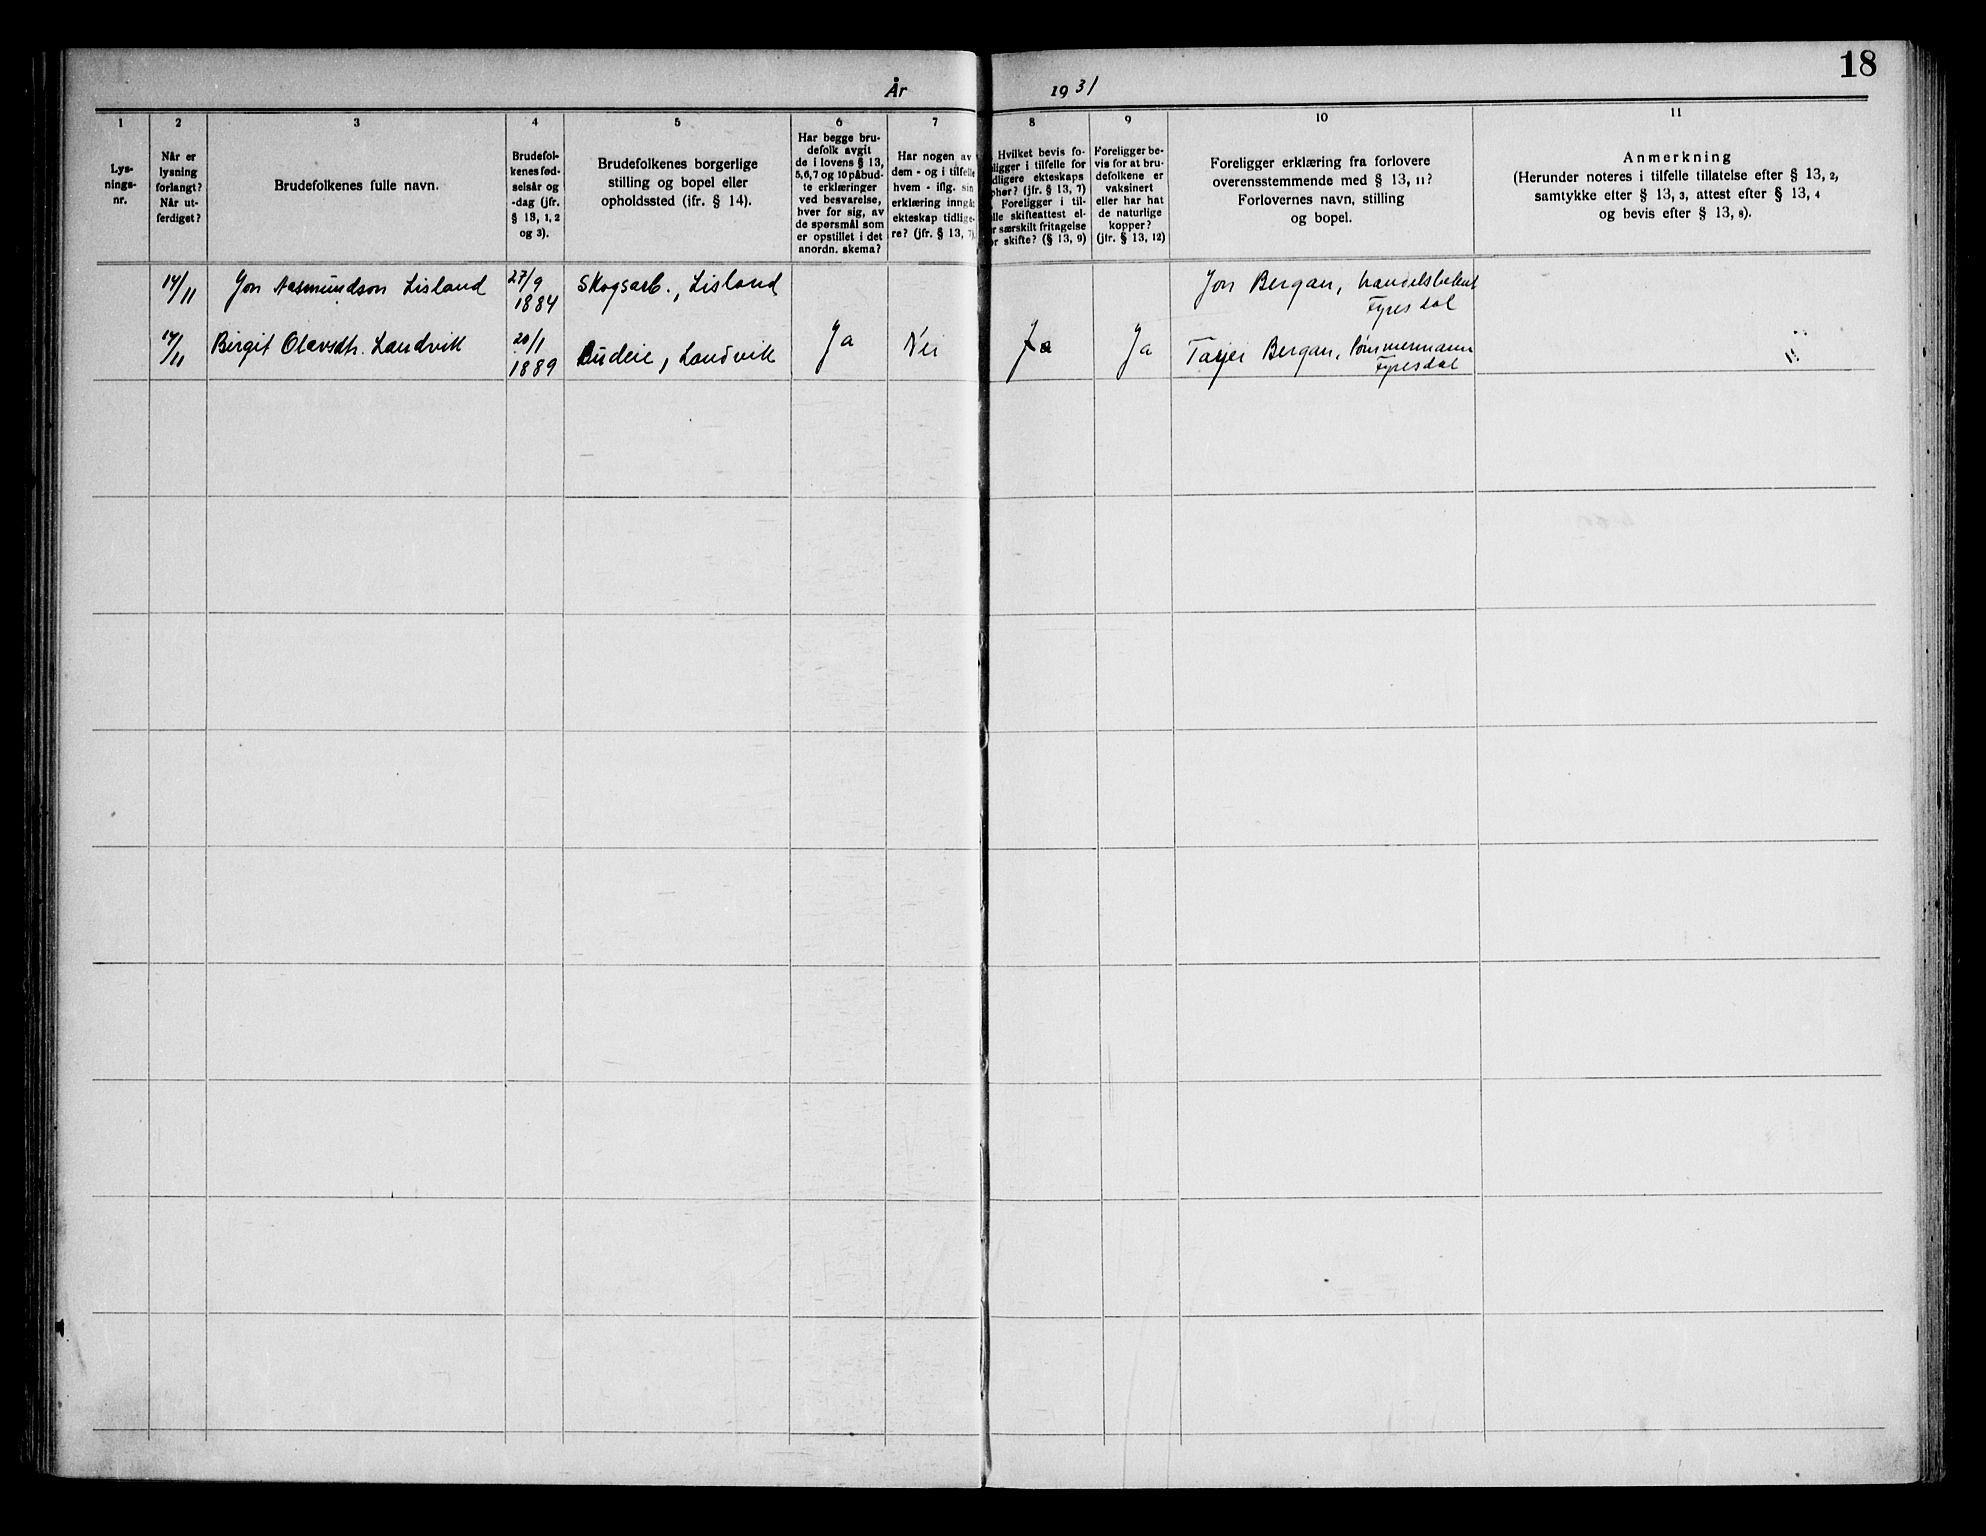 18
År 1931
1 2 3 4 5 6 7 8 9 10 11
Lys-
nings-
nr.
Når er
lysning
forlangt?
Når ut-
ferdiget?
Brudefolkenes fulle navn.
Brudefol-
kenes fød-
selsår og
-dag (jfr.
§ 13, 1, 2
og 3).
Brudefolkenes borgerlige
stilling og bopel eller
opholdssted (jfr. § 14).
Har begge bru-
defolk avgit
de i lovens § 13,
5,6,7 og 10 påbud-
te erklæringer
ved besvarelse,
hver for sig, av
de spørsmål som
er opstillet i det
anordn. skema?
Har nogen av
dem - og i tilfelle
hvem - iflg. sin
erklæring inngåt
ekteskap tidlige-
re? (jfr. § 13, 7)
Hvilket bevis fo-
ligger i tilfelle for
dligere ekteskaps
phør? (jfr. § 13, 7)
Foreligger i til-
lle skifteattest el-
r særskilt fritagelse
or skifte? (§ 13, 9)
Foreligger be-
vis for at bru-
defolkene er
vaksinert
eller har hat
de naturlige
kopper?
(jfr. § 13, 12)
Foreligger erklæring fra forlovere
overensstemmende med § 13, 11?
Forlovernes navn, stilling
og bopel.
Anmerkning
(Herunder noteres i tilfelle tillatelse efter § 13, 2,
samtykke efter § 13, 3, attest efter § 13, 4
og bevis efter § 13, 8).
14/11 Jon Aasmundson Lisland 27/9 1884 Skogsarb., Lisland Jon Bergan, handelsbetent Fyresdal
14/11 Birgit Olavsdtr. Landvik 20/1 1889 Budeie, Landvik Ja Nei Ja Ja Tarjei Bergan, tømmermann Fyresdal